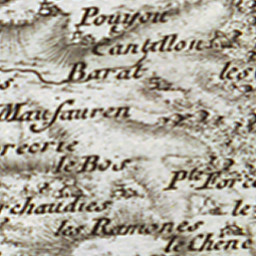 Pouyou
Cantillon
Barat
les
Mausauren
le Bos
Pte Force
rchaudies
le
les Ramones
le Chene